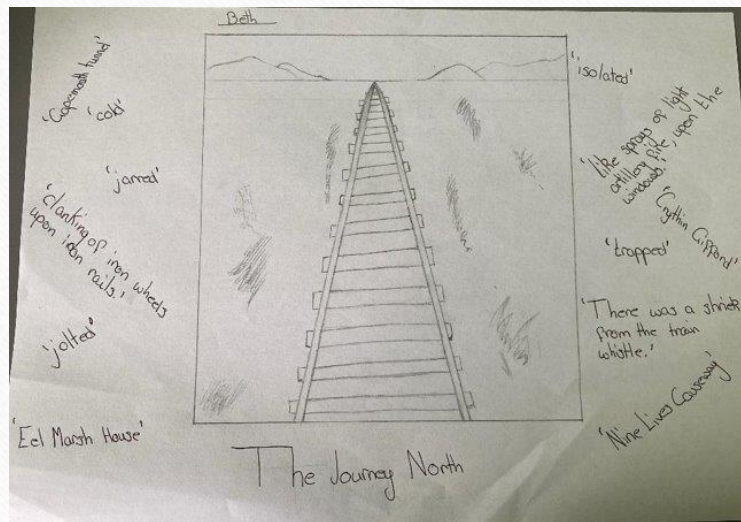 Beth
'Gapemouth tunnel'
'cold'
'jarred'
'clanking of iron wheels
upon iron rails.'
'jolted'
'Eel Marsh House'
'isolated'
'like sprays of light
artillery fire, upon the
windows.'
'Crythin Gifford'
'trapped'
'There was a shriek
from the train
whistle.'
'Nine Lives Causeway'
The Journey North